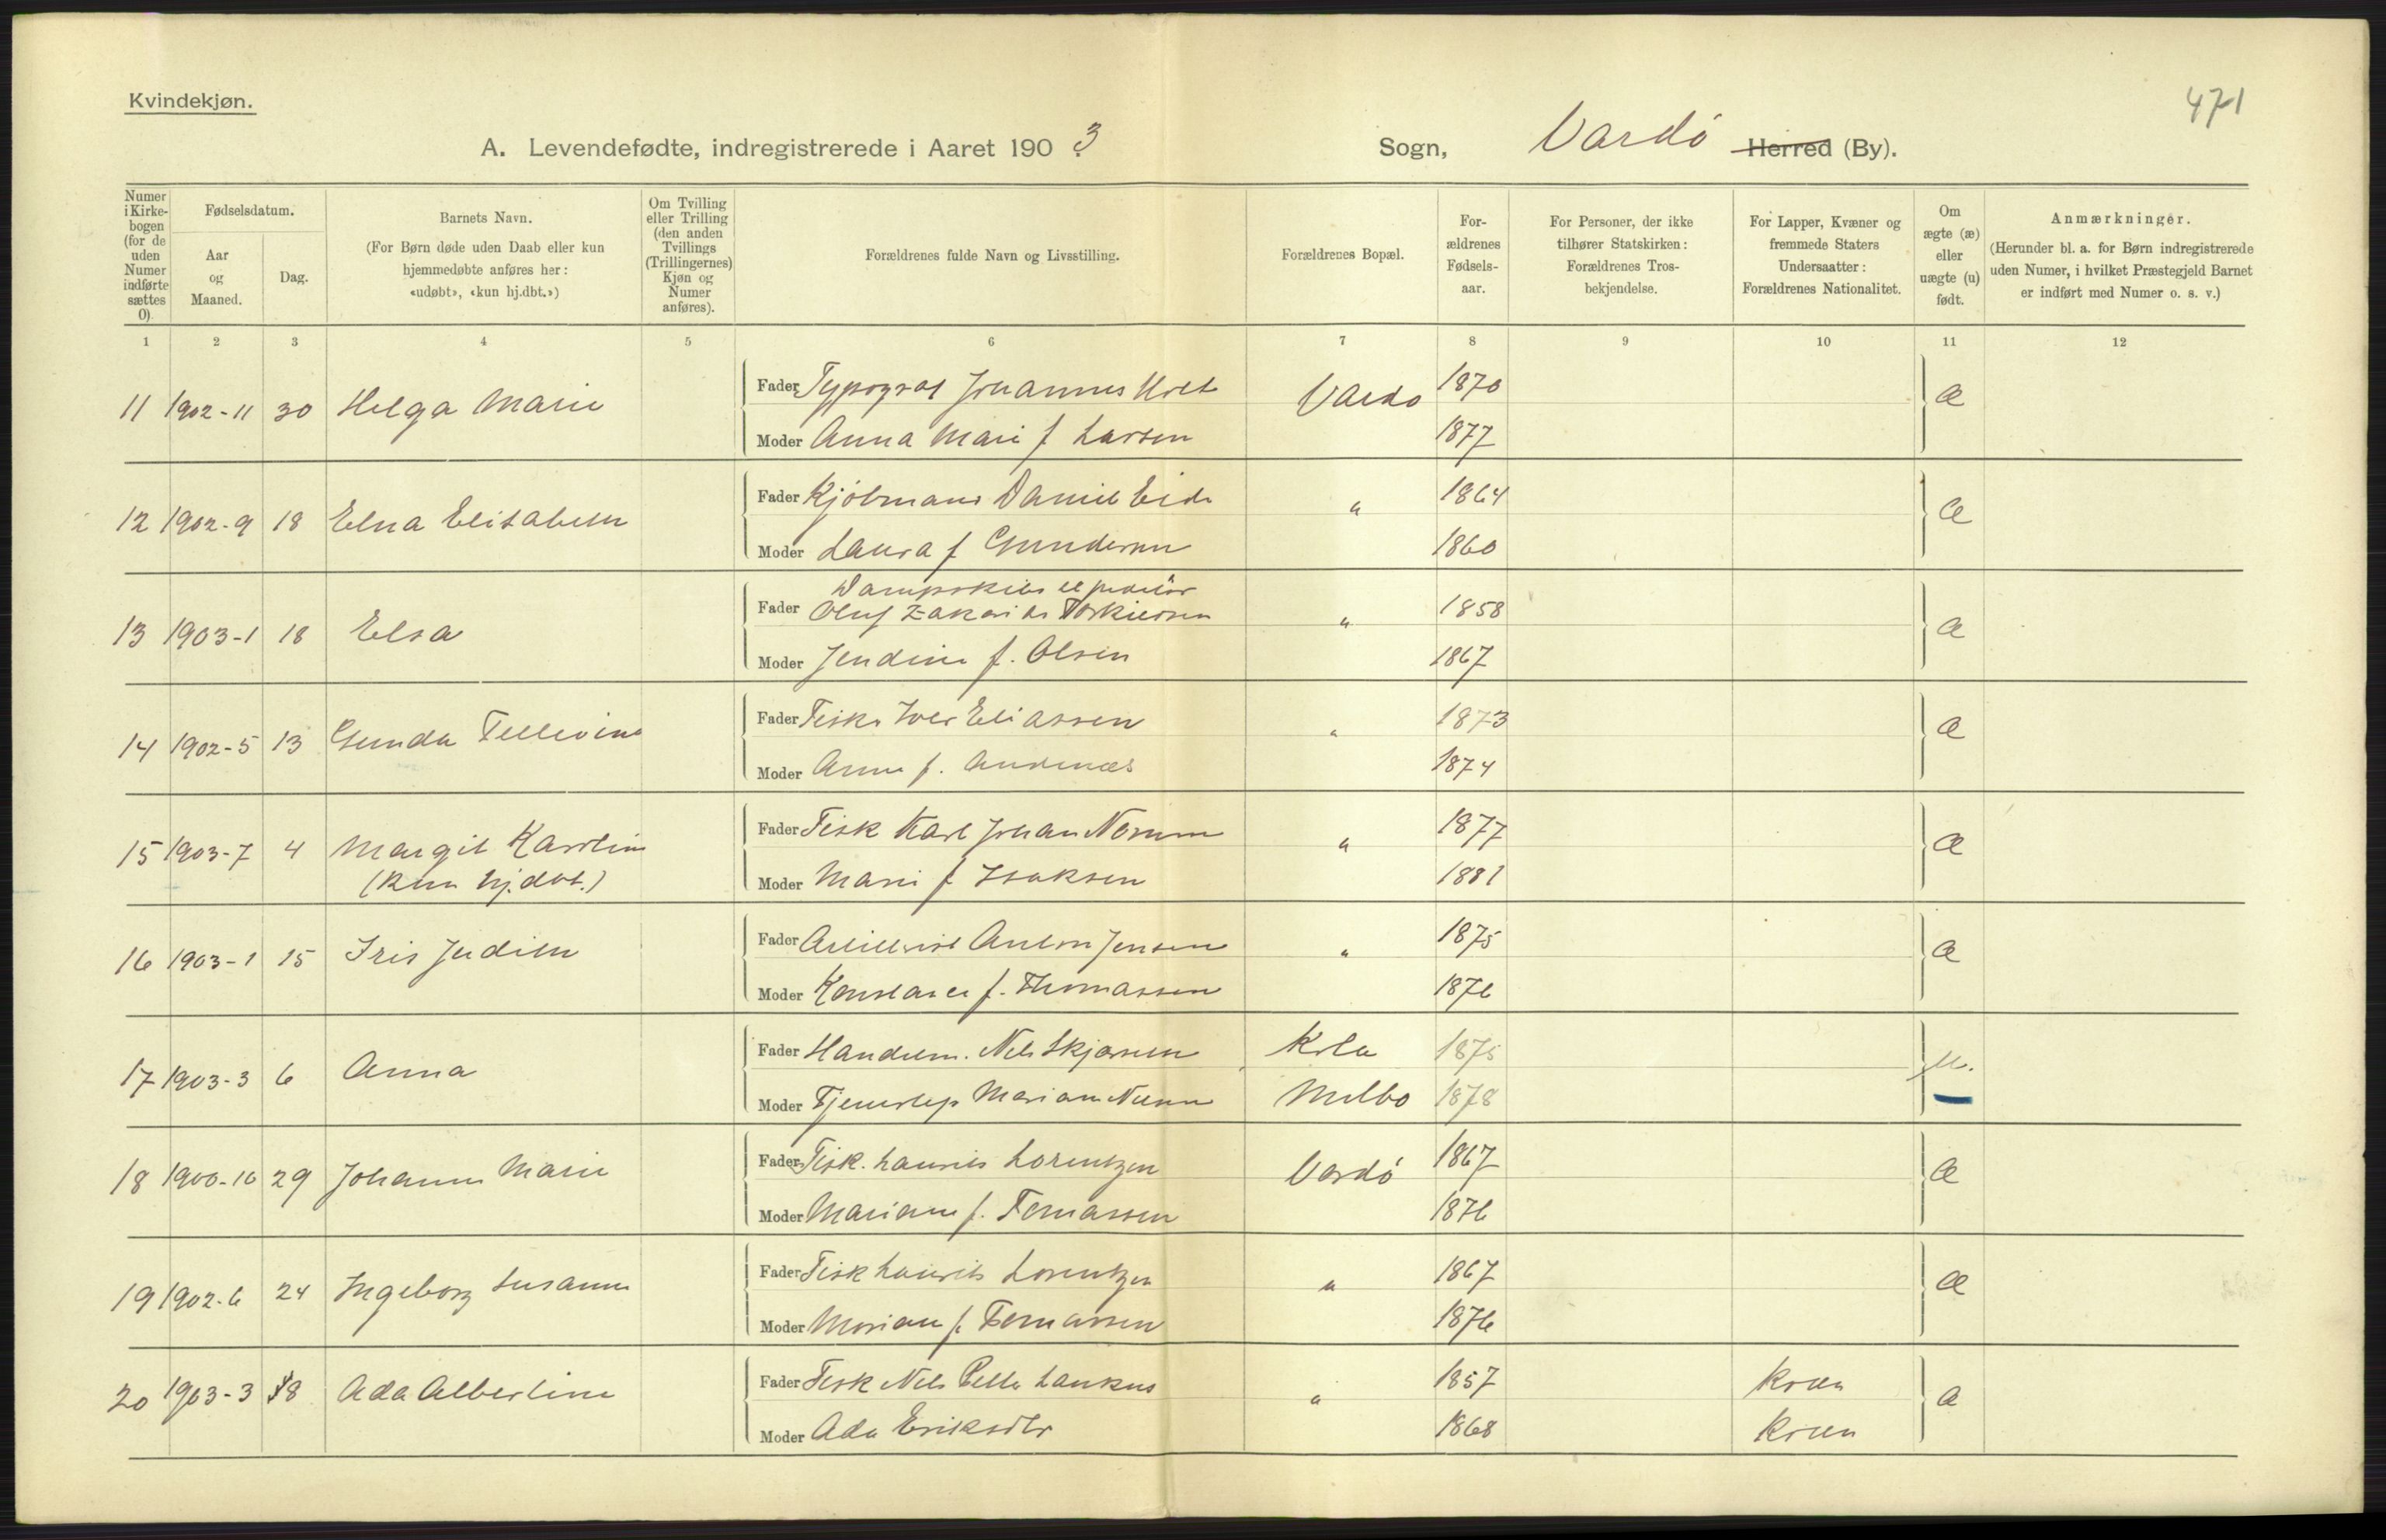 471
Kvindekjøn.
A. Levendefødte, indregistrerede i Aaret 1903. Sogn, Vardö Herred (By).
Numer i Kirkebogen (for de uden Numer indførte sættes 0).
Fødselsdatum.
Aar og Maaned.
Dag.
Barnets Navn.
(For Børn døde uden Daab eller kun hjemmedøbte anføres her: «udøbt», «kun hj.dbt.»)
Om Tvilling eller Trilling (den anden Tvillings (Trillingernes) Kjøn og Numer anføres).
Forældrenes fulde Navn og Livsstilling.
Forældrenes Bopæl.
Forældrenes Fødselsaar.
For Personer, der ikke tilhører Statskirken: Forældrenes Trosbekjendelse.
For Lapper, Kvæner og fremmede Staters Undersaatter: Forældrenes Nationalitet.
Om ægte (æ) eller uægte (u) født.
Anmærkninger.
(Herunder bl. a. for Børn indregistrerede uden Numer, i hvilket Præstegjeld Barnet er indført med Numer o. s. v.)
1 2 3 4 5 6 7 8 9 10 11 12
11 1902-11 30 Helga Marie Fader Typograf Johannes Vardø 1870 æ
Moder Anna Marie f Larsen 1877
12 1902-9 18 Elna Elisabeth Fader Kjöbmand Daniel Eide " 1864 æ
Moder Laura f Gundersen 1860
13 1903-1 18 Elsa Dampskibs
Fader Oluf Zakarias " 1858 æ
Moder Jendine f. Olsen 1867
14 1902-5 13 Gunda Fader Fisker Iver Eliassen " 1873 æ
Moder Anne f. Andenæs 1874
15 1903-7 4 Margit Karoline Fader Fisk Karl Johan " 1877 æ
(kun hj.dbt.) Moder Marie f Isaksen 1881
16 1903-1 15 Iris Judith Fader Anton Jensen " 1875 æ
Moder Konstance f. Thomassen 1876
17 1903-3 6 Anna Fader Handelsm. Nils Kola 1875 u.
Moder Tjenestep Mariane Melbo 1878
18 1900-10 29 Johanne Marie Fader Fisk. Laurits Lorentzen Vardö 1867 æ
Moder Mariane f. Tomassen 1876
19 1902-6 24 Ingeborg Susanne Fader Fisk Laurits Lorentzen " 1867 æ
Moder Mariane f. Tomassen 1876
20 1903-3 18 Ada Albertine Fader Fisk Nils Petter Lankus " 1857 kvæn æ
Moder Ada Eriksdtr 1868 kvæn